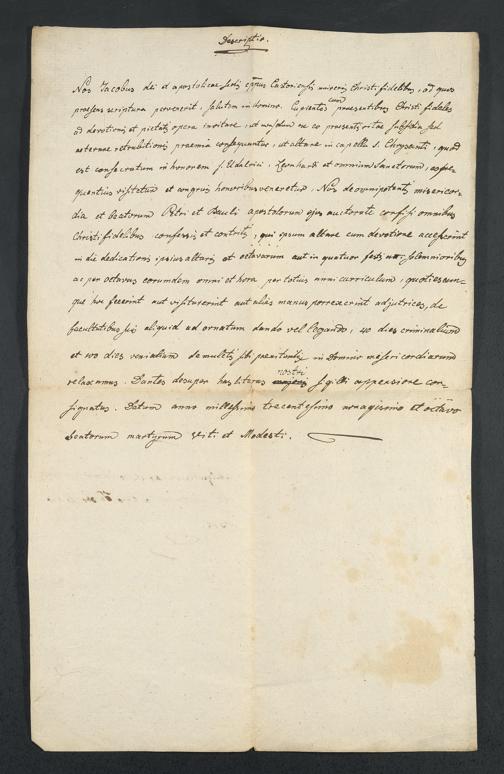 Descriptio.
Nos Jacobus dei et apostolicae sedis eppus Castoriensis universis Christi fidelibus, ad quos
praesens scriptura pervenerit, salutem in domino. Cupientes cum praesentibus Christi fideles
ad devotionis et pietatis opera invitare, ut nondum ex eo praesentis vitae subsidia sed
aeternae retributionis praemia consequantur, ut altare in capella S. Chrysanti, quod
est consecratum in honorem S. Udalrici, Leonhardi et omnium Sanctorum, a
quentius visitetur et congruis honoribus veneretur, Nos de omnipotentis misericor-
dia et beatorum Petri et Pauli apostolorum ejus auctoritate confisi omnibus
Christi fidelibus confessis et contritis, qui ipsum altare cum devotione accesserint
in die dedicationis ipsius altaris et octavarum aut in quatuor festis solemnioribus
ac per octavas eorundem omni et hora per totius anni curriculum, quotiescun-
que hoc fecerint aut visitaverint aut alias manus porrexerint adjutrices, de
facultatibus suis aliquid ad ornatum dando vel legando, 40 dies criminalium
et 100 dies venialium de multis sibi poenitentiis in Domino misericordiarum
relaxamus. Dantes desuper has literas nostri sigilli appensione con-
signatas. Datum anno millesimo trecentesimo nonagesimo et octavo
beatorum martyrum Viti et Modesti.